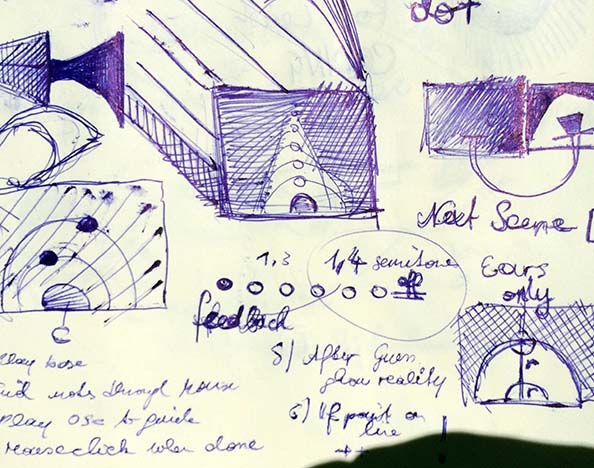 dot
Next Scene
1,3
1,4 semitone
Ears
only
feedback
Play base
notes through Mouse
Play Osc to guide
Mouseclick when done
5) After Guess
show reality
6) If point on
line
r
r